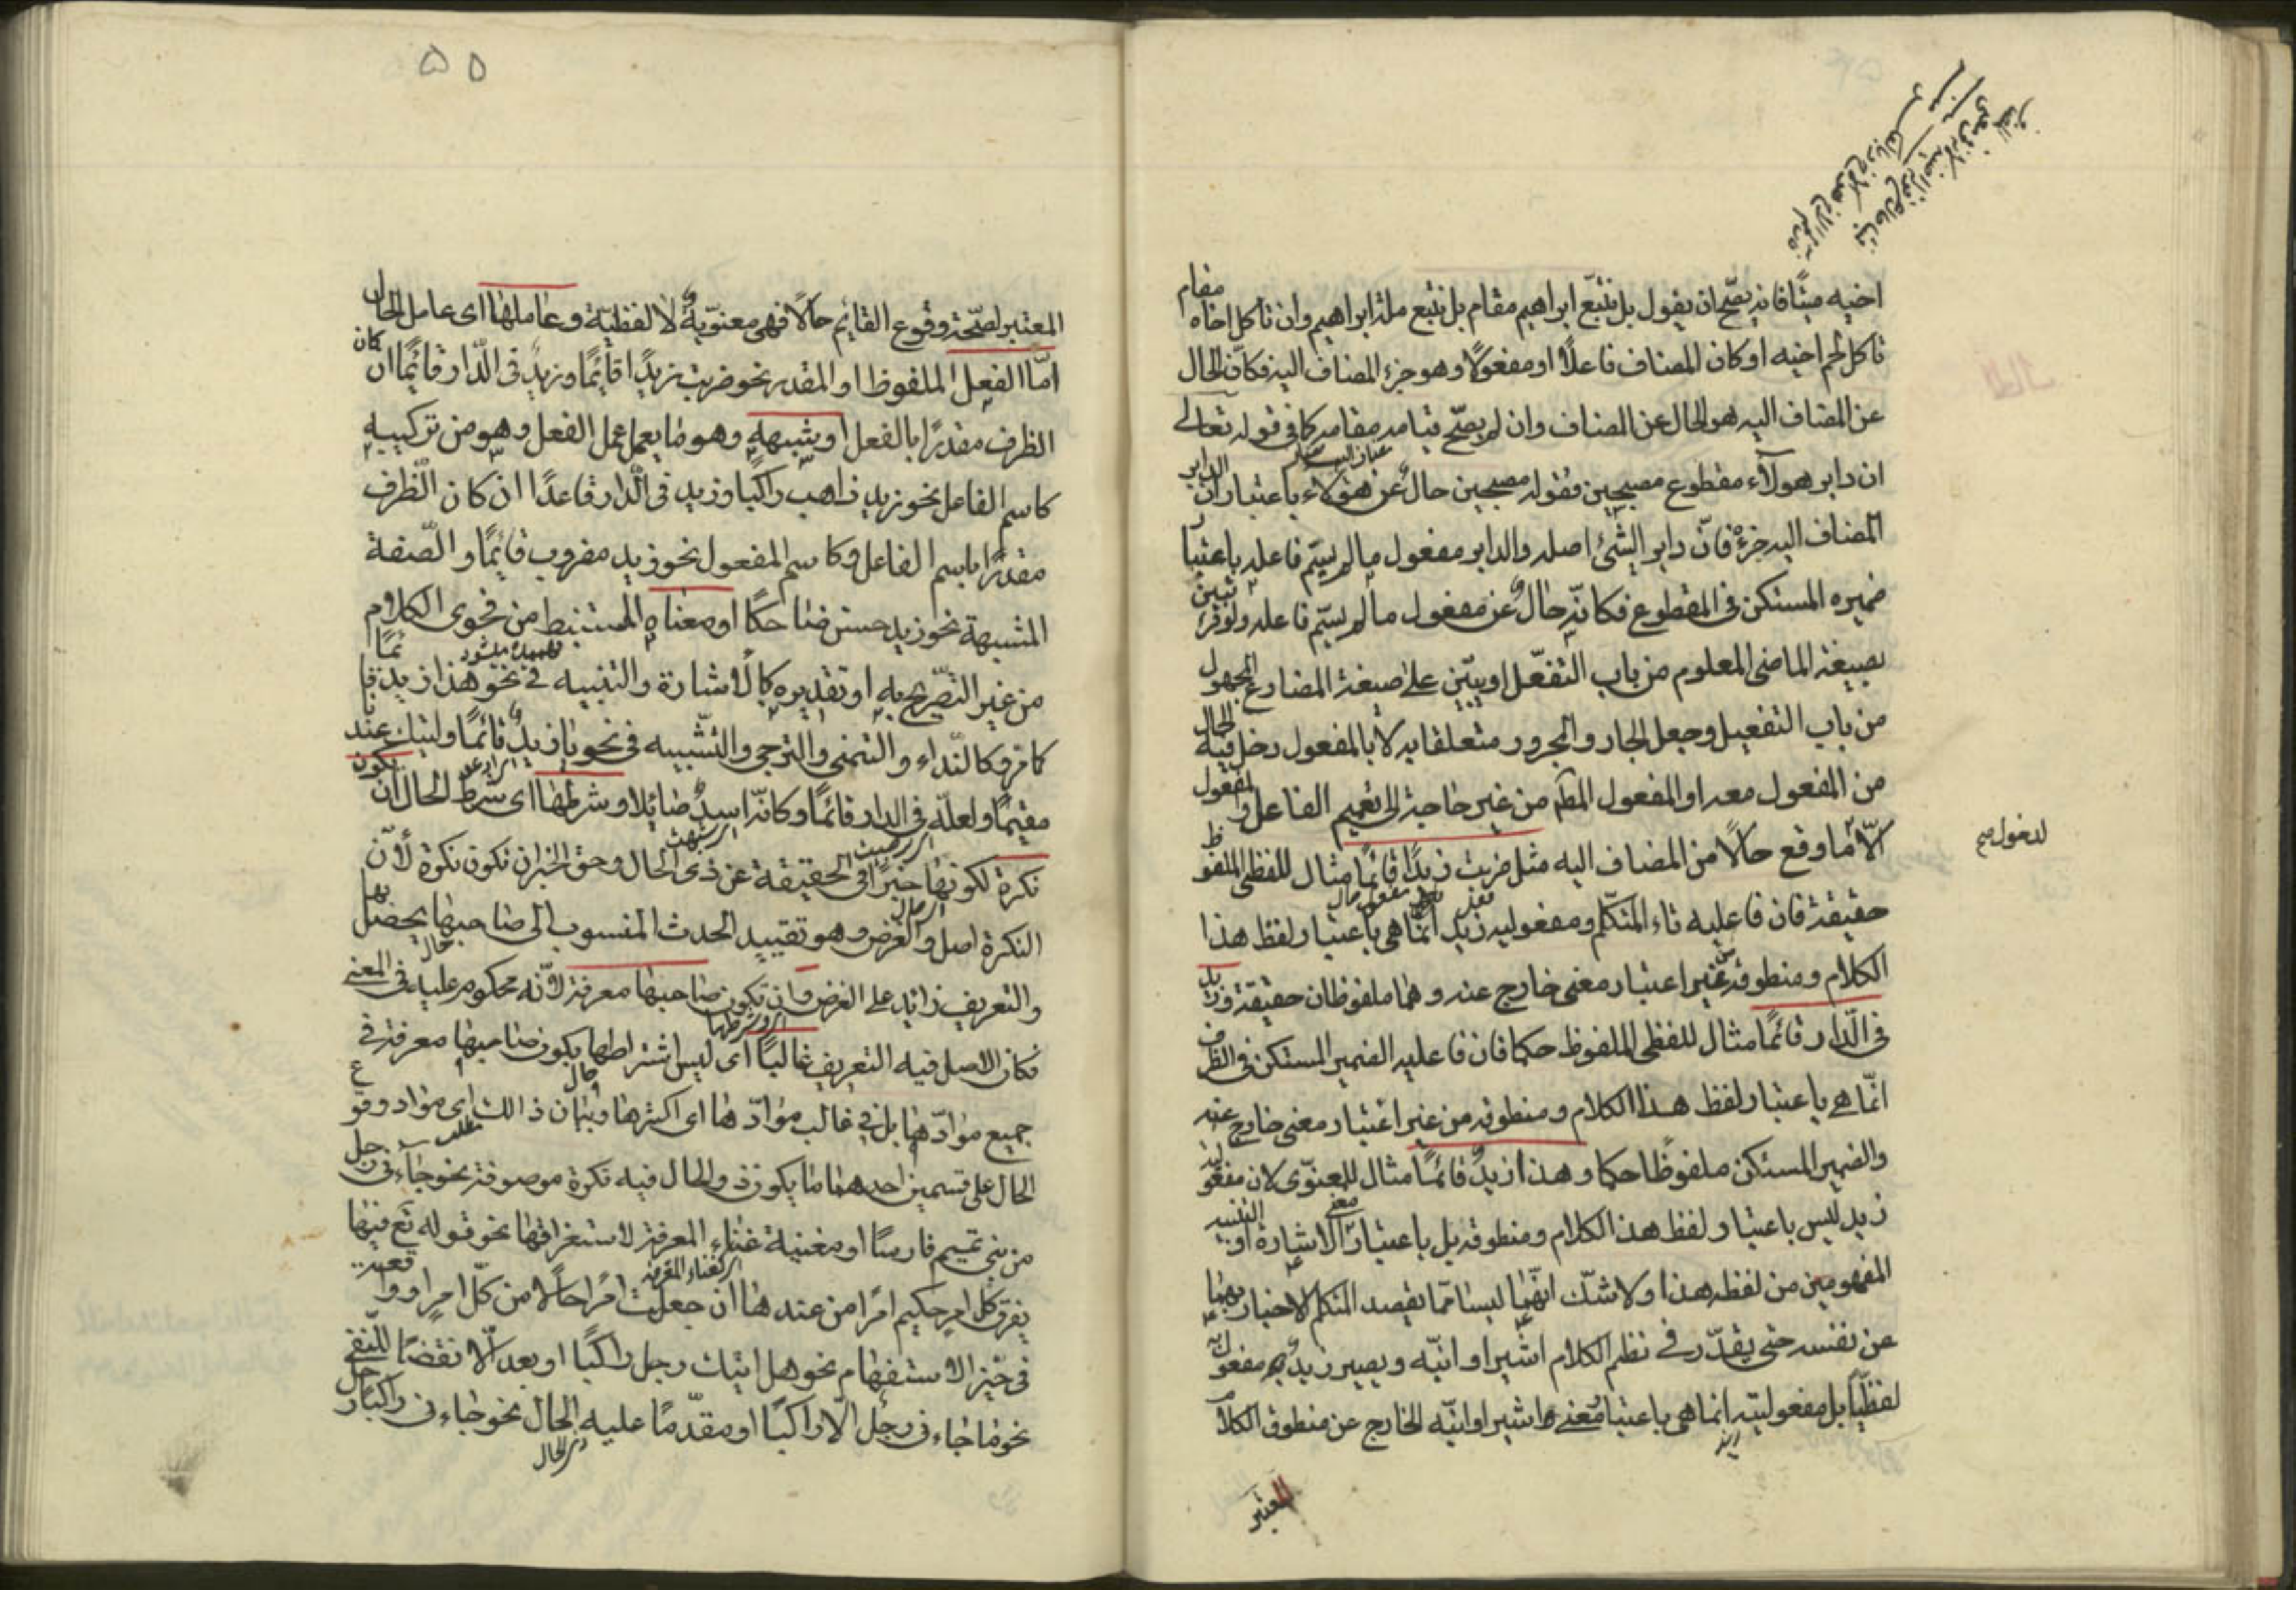 اخيه ميتًا فانه يصّح ان يقول بل نتبّع ابراهيم مقام بل نتبع ملة ابراهيم وان تاكل اخاه مقام
تاكل لحم اخيه او كان المضاف فاعلًا او مفعولًا وهو جزء المضاف اليه فكانّ الحال
عن المضاف اليه هو الحال عن المضاف وان لم يصّح قيامه مقامه كما فى قوله تعالى
ان دابر هولآء مقطوع مصبحين فقوله مصبحين حال عن هؤلاء باعتبار ان الدابر
المضاف اليه جزءه فانّ دابر الشئ اصله والدابر مفعول ما لم يسّم فاعله باعتبا
ضميره المستكن فى المقطوع فكانّه حال عن مفعول ما لم يسّم فاعله ولو قرئ تبيّن
بصيغة الماضى المعلوم من باب التفعّل او يبيّن على صيغة المضارع المجهول
من باب التفعيل وجعل الجار والمجرور متعلقا به لا بالمفعول دخل فيه الحال
من المفعول معه او المفعول المطلق من غير حاجة الى تعميم الفاعل والمفعول
لدخول صح
الّا ما وقع حالًا من المضاف اليه مثل ضربت زيدًا قائمًا مثال للفظى الملفوظ
حقيقة فان فاعلية تاء المتكلّم ومفعولية زيد انّما هى باعتبار لفظ هذا
الكلام ومنطوقه من غير اعتبار معنى خارج عنه وهما ملفوظان حقيقة وزيد
فى الدّار قائمًا مثال للفظى الملفوظ حكما فان فاعلية الضمير المستكن فى الظرف
انّما هى باعتبار لفظ هذا الكلام ومنطوقه من غير اعتبار معنى خارج عنه
والضمير المستكن ملفوظًا حكما وهذا زيدٌ قائمًا مثال للمعنوّى لان مفعولية
زيد ليس باعتبار لفظ هذا الكلام ومنطوقه بل باعتبار معنى الاشارة او التنبيه
المفهومين من لفظه هذا ولا شكّ انّهما ليسا ممّا يقصد المتكلم الاخبار بهما
عن نفسه حتى يقدّر فى نظم الكلام اشير او انبّه ويصير زيدٌ به مفعولا
لفظيًّا بل مفعوليته انما هى باعتبار معنى اشير او انبّه الخارج عن منطوق الكلام
المعتبر
٥٥
المعتبر لصّحة وقوع القائم حالًا فهى معنوّية لا لفظيّة وعاملها اى عامل الحال
امّا الفعل الملفوظ او المقدر نحو ضربت زيدًا قائمًا وزيد فى الدّار قائمًا ان كان
الظرف مقدرًا بالفعل او شبهه وهو ما يعمل عمل الفعل وهو من تركيبه
كاسم الفاعل نحو زيد ذاهب راكبا وزيد فى الدّار قاعدًا ان كان الظّرف
مقدرًا باسم الفاعل وكاسم المفعول نحو زيد مضروب قائمًا والصّفة
المشبهة نحو زيد حسن ضاحكًا او معناه المستنبط من فحوى الكلام
من غير التصّريح به او تقديره كالاشارة والتنبيه فى نحو هذا زيد قائمًا
كما مرّ وكالنّداء والتمنى والترجى والتّشبيه فى نحو يا زيدُ قائمًا وليتك عندنا
مقيمًا ولعلّه فى الدار قائمًا وكانّه اسدٌ صائلا وشرطها اى شرط الحال ان تكون
نكرة لكونها خبرًا فى الحقيقة عن ذى الحال وحق الخبر ان تكون نكرة لأنّ
النكرة اصل والغرض وهو تقييد الحدث المنسوب الى صاحبها يحصل بها
والتعريف زائد على الغرض وان تكون صاحبها معرفة لانّه محكوم عليه فى المعنى
فكان الاصل فيه التعريف غالبًا اى ليس اشتراطها بكون صاحبها معرفة فى
جميع موادّها بل فى غالب موادّها اى اكثرها وبيان ذالك اى مواد وقوع
الحال على قسمين احدهما ما يكون ذو الحال فيه نكرة موصوفة نحو جآءنى رجل
من بنى تميم فارسًا او مغنية غناء المعرفة لاستغراقها نحو قوله تع فيها
يفرق كل امر حكيم امرًا من عندنا ان جعلت امرًا حالا من كلّ امر او واقعة
فى حيّز الاستفهام نحو هل اتيك رجل راكبًا او بعد الّا نقضًا للنّفى
نحو ما جاءنى رجل الّا راكبًا او مقدّمًا عليه الحال نحو جاءنى راكبًا رجل